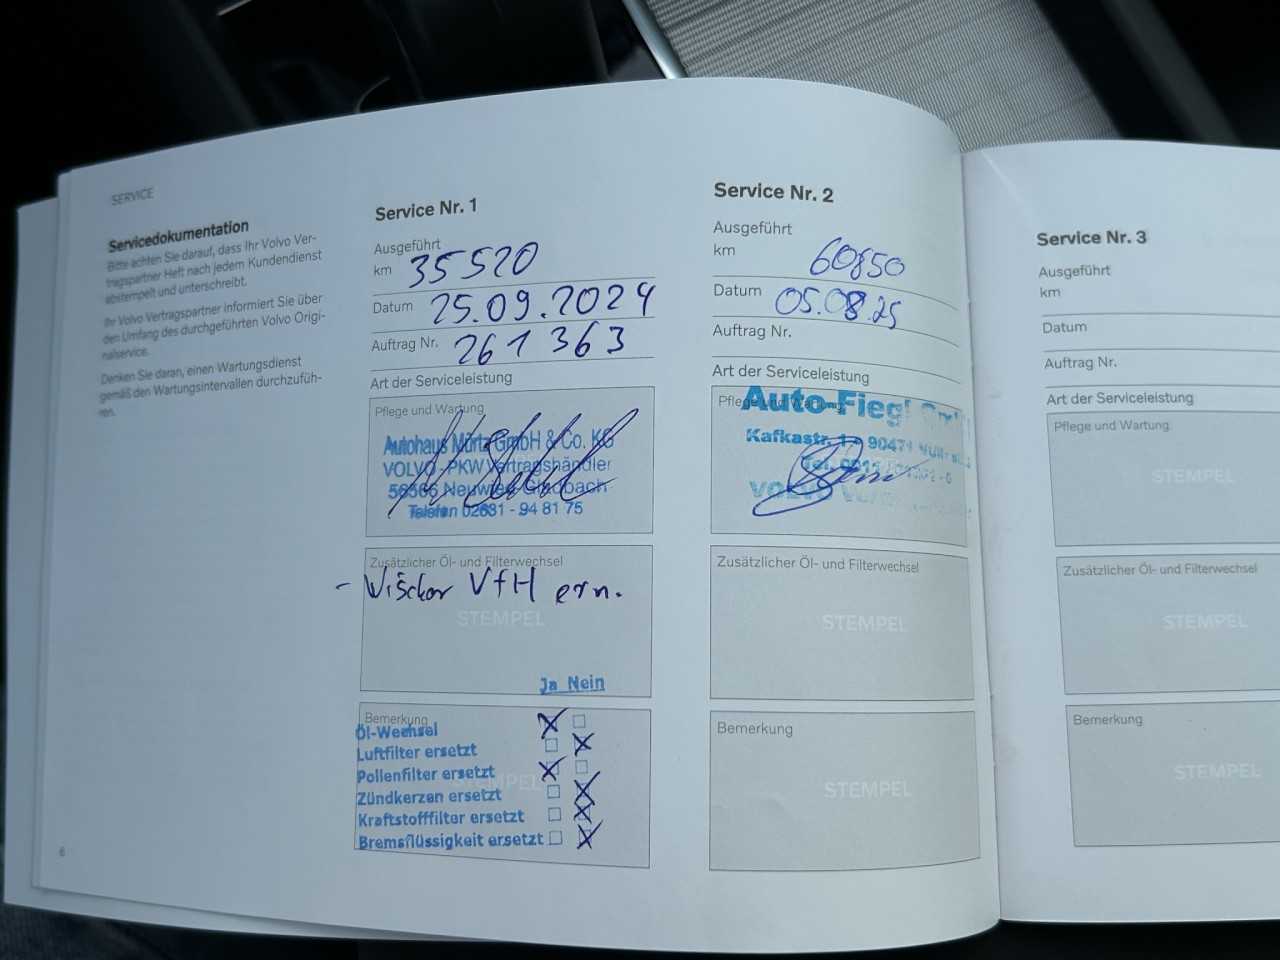 SERVICE
Servicedokumentation
Bitte achten Sie darauf, dass Ihr Volvo Ver-
tragspartner Heft nach jedem Kundendienst
abstempelt und unterschreibt.
Ihr Volvo Vertragspartner informiert Sie über
den Umfang des durchgeführten Volvo Origi-
nalservice.
Denken Sie daran, einen Wartungsdienst
gemäß den Wartungsintervallen durchzufüh-
ren.
6
Service Nr. 1
Ausgeführt
km 35520
Datum 25.09.2024
Auftrag Nr. 261 363
Art der Serviceleistung
Pflege und Wartung
Autohaus Mürtz GmbH & Co. KG
VOLVO - PKW Vertragshändler
56566 Neuwied Gladbach
Telefon 02631 - 94 81 75
Zusätzlicher Öl- und Filterwechsel
- Wischer VfH ern.
STEMPEL
Ja Nein
Bemerkung
Öl-Wechsel
Luftfilter ersetzt
Pollenfilter ersetzt
STEMPEL
Zündkerzen ersetzt
Kraftstofffilter ersetzt
Bremsflüssigkeit ersetzt
Service Nr. 2
Ausgeführt
km 60850
Datum 05.08.25
Auftrag Nr.
Art der Serviceleistung
Pflege und Wartung
Auto-Fiegl GmbH
Kafkastr. 90471
Tel.
VOLVO
Zusätzlicher Öl- und Filterwechsel
STEMPEL
Bemerkung
STEMPEL
Service Nr. 3
Ausgeführt
km
Datum
Auftrag Nr.
Art der Serviceleistung
Pflege und Wartung
STEMPEL
Zusätzlicher Öl- und Filterwechsel
STEMPEL
Bemerkung
STEMPEL